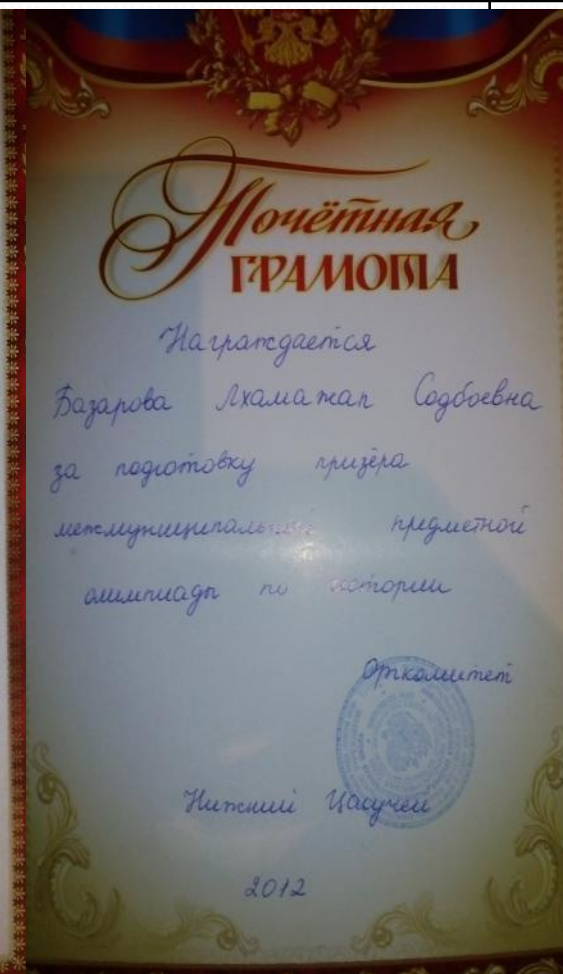 Почётная
ГРАМОТА
Награждается
Базарова Лхамажап Содбоевна
за подготовку призёра
межмуниципальной предметной
олимпиады по истории
Оргкомитет
Нижний Цасучей
2012